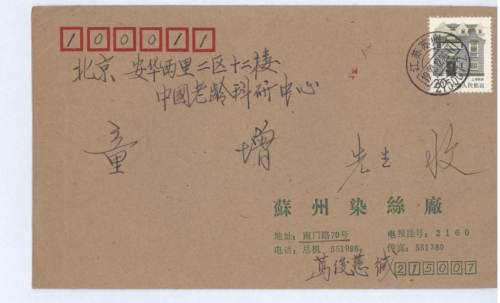 100011
北京 安华西里二区十二楼
中國老龄科研中心
童增 先生 收
蘇州染絲廠
地址：南门路70号 电报挂号：2160
电话：总机 551986 传真：551780
葛俊慈 缄 215007